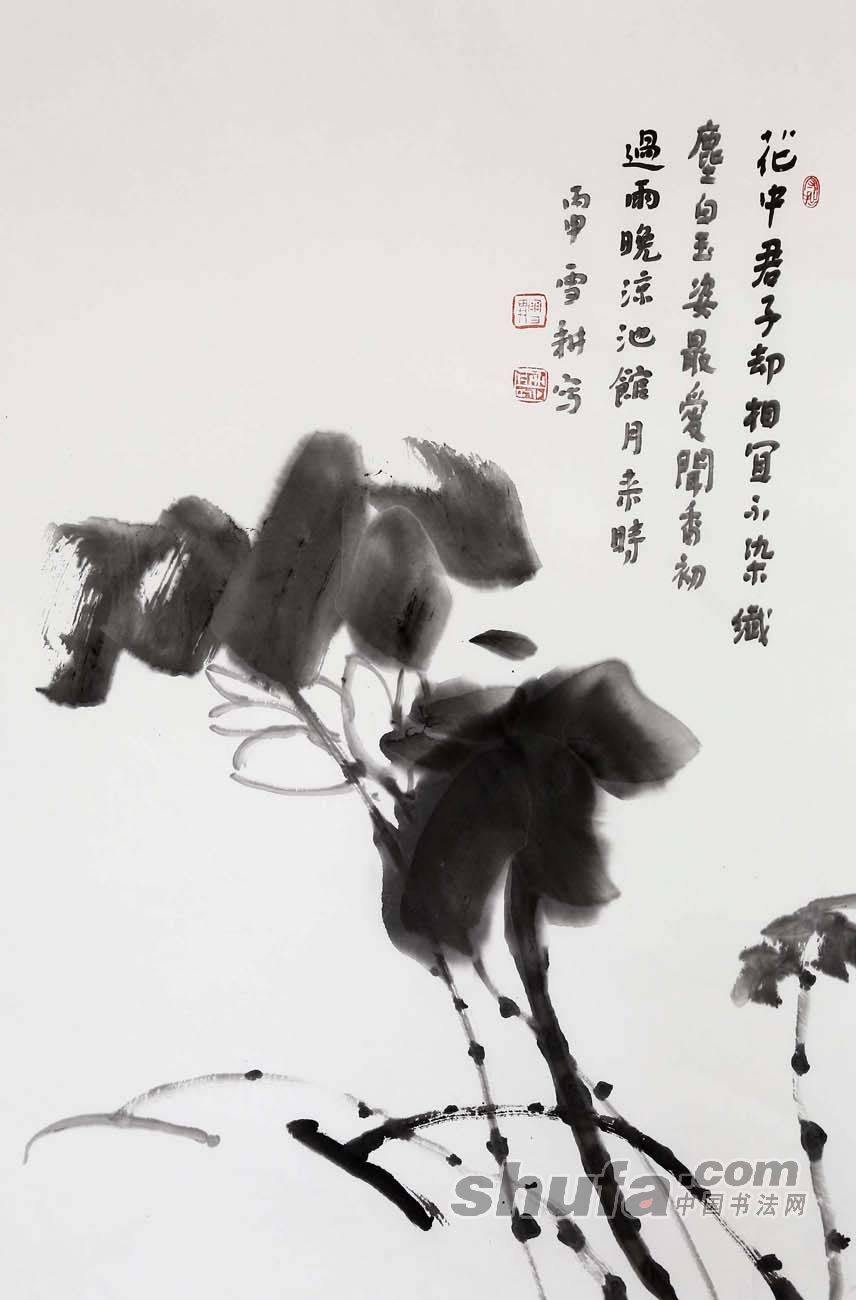 花中君子却相宜不染纖
塵白玉姿最愛聞香初
過雨晚涼池館月来時
丙申雪耕写
shufa.com
中国书法网